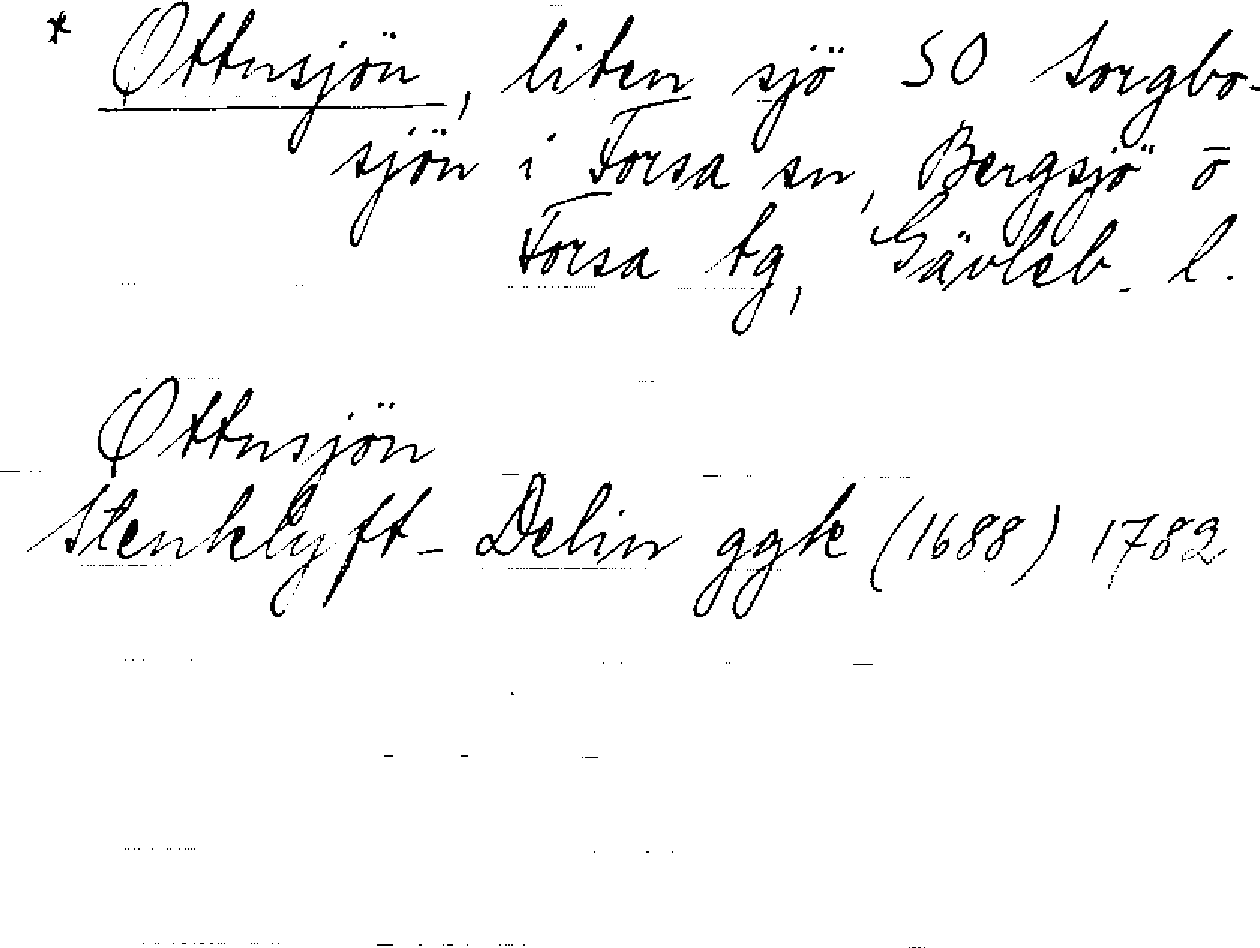 * Ottnsjön, liten sjö SO Sorgbo-
sjön i Forsa sn, Bergsjö o
Forsa tg, Gävleb. l.
Ottnsjön
Stenklyft- Delin ggk (1688) 1782